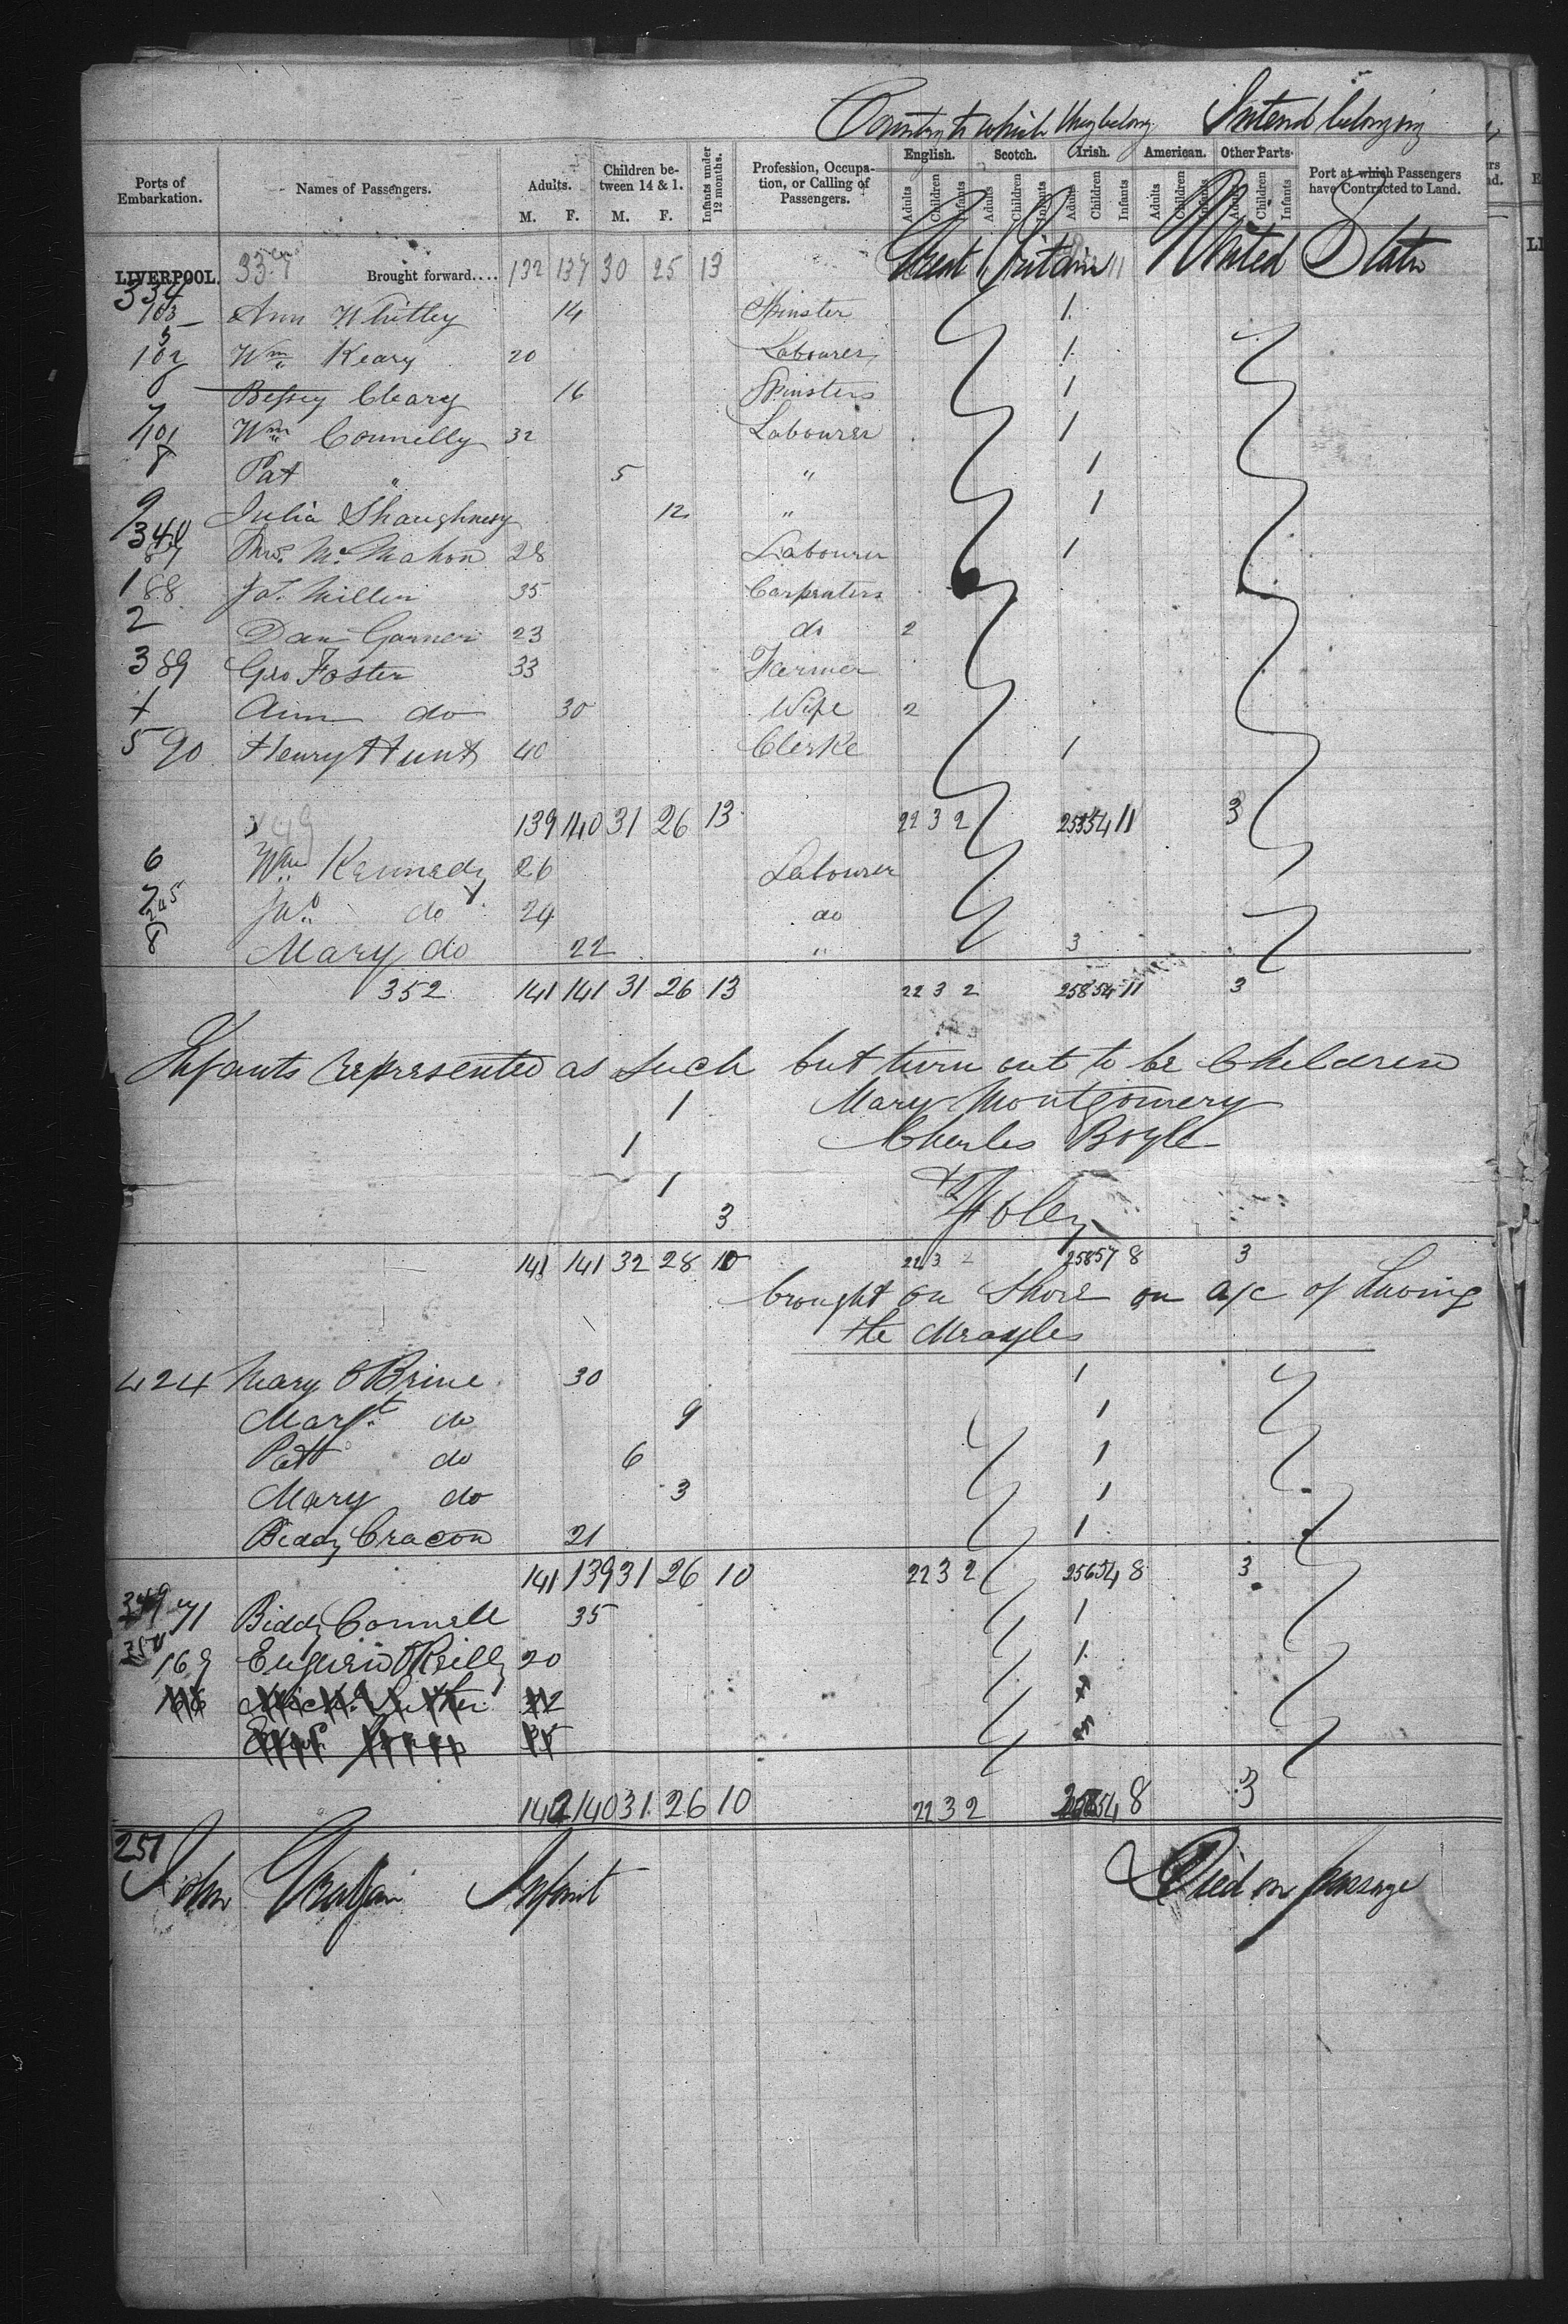 Country to which they belong Intend belonging
Ports of Embarkation. Names of Passengers. Adults. M. F. Children between 14 & 1. M. F. Infants under 12 months. Profession, Occupation, or Calling of Passengers. English. Adults Children Infants Scotch. Adults Children Infants Irish. Adults Children Infants American. Adults Children Infants Other Parts. Adults Children Infants Port at which Passengers have Contracted to Land.
LIVERPOOL. 337 Brought forward.... 132 137 30 25 13 Great Britain 11 United States
334 103 Ann Whitley 14 Spinster 1
5 102 Wm Keary 20 Labourer 1
6 Bessey Cleary 16 Spinsters 1
7 101 Wm Connelly 32 Labourer 1
8 Pat " 5 " 1
9 Julia Shaughnesy 12 " 1
340 87 Thos. McMahon 28 Labourer 1
1 88 Jas. Miller 35 Carpenters
2 Dan Garner 23 do 2
3 89 Geo Foster 33 Farmer
4 Ann do 30 Wife 2
5 90 Henry Hunt 40 Clerke 1
349 139 140 31 26 13 22 3 2 255 54 11 3
6 Wm Kennedy 26 Labourer
7 245 Jno. do 24 do
8 Mary do 22 " 3
352 141 141 31 26 13 22 3 2 258 54 11 3
Infants represented as such but turn out to be Children
1 Mary Montgomery
1 Charles Boyle
1 & Foley
3
141 141 32 28 10 22 3 2 258 57 8 3
brought on Shore on a/c of having
the Measles
424 Mary O Brine 30 1
Margt. do 9 1
Patt do 6 1
Mary do 3 1
Biddy Cracon 21 1
141 139 31 26 10 22 3 2 256 54 8 3
349 71 Biddy Connell 35 1
350 169 Eugene O'Reilly 20 1
142 140 31 26 10 22 3 2 54 8 3
251
John Infant Died on passage